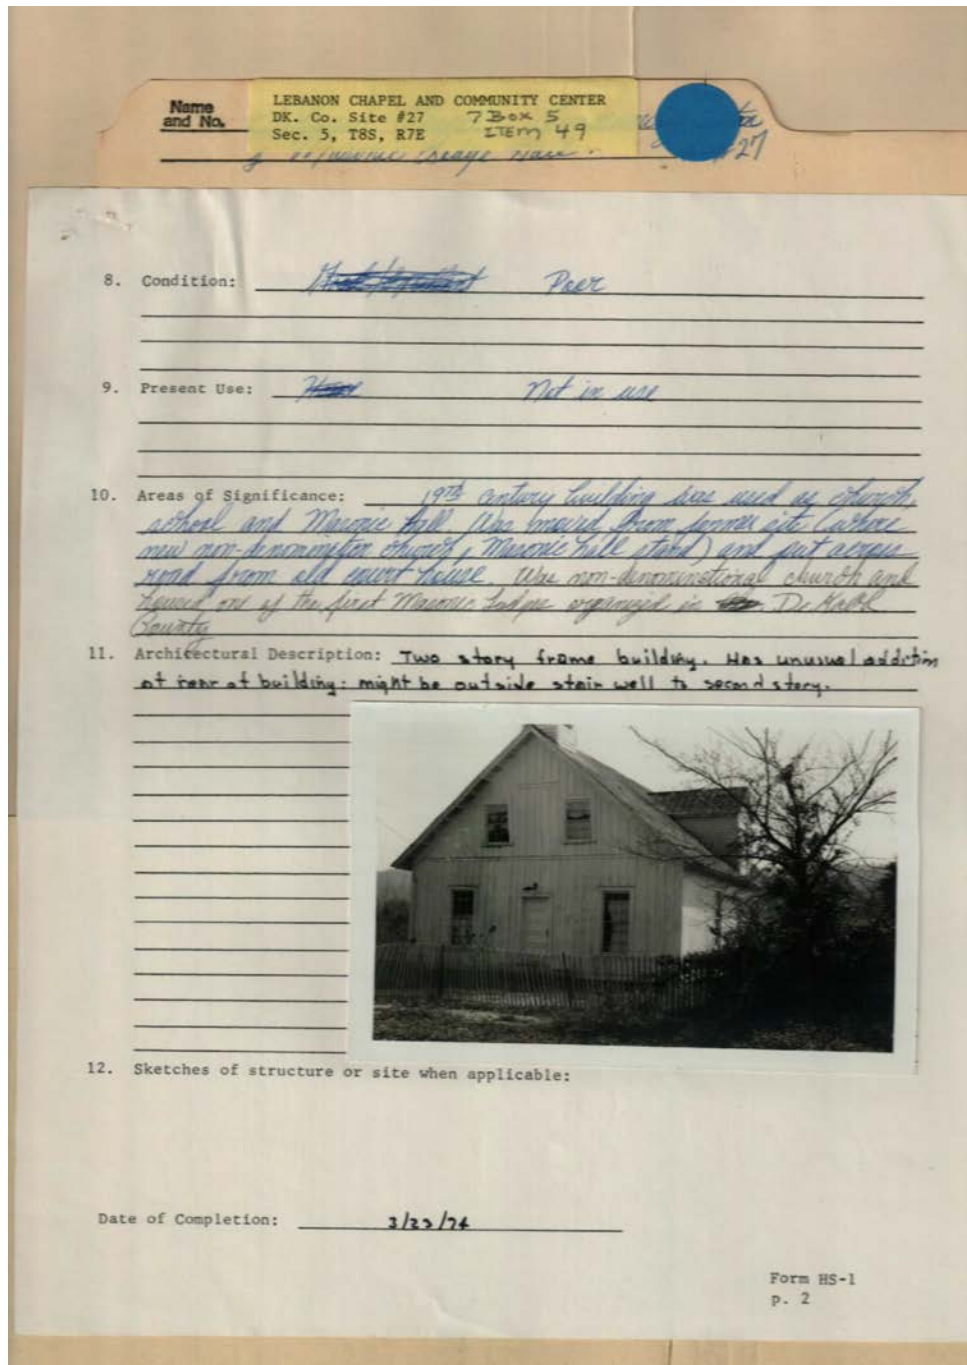 Name
and No.
LEBANON CHAPEL AND COMMUNITY CENTER
DK. Co. Site #27 7 Box 5
Sec. 5, T8S, R7E ITEM 49
#27
8. Condition: Poor
9. Present Use: Not in use
10. Areas of Significance: 19th century building was used as church,
school and Masonic hall. Was moved from former site (where
new non-denomination church & Masonic hall stand) and put across
road from old court house. Was non-denominational church and
housed one of the first Masonic Lodges organized in De Kalb
County
11. Architectural Description: Two story frame building. Has unusual addition
at rear of building: might be outside stair well to second story.
12. Sketches of structure or site when applicable:
Date of Completion: 3/23/74
Form HS-1
p. 2